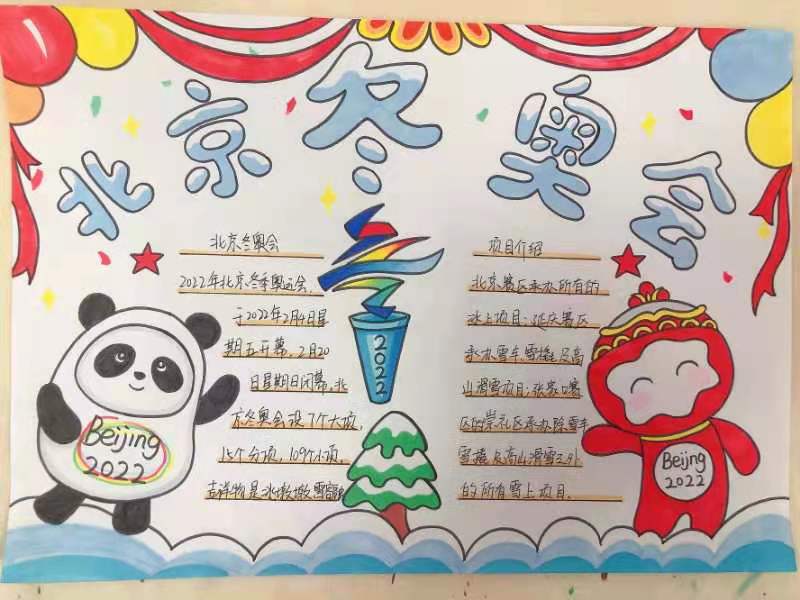 北京冬奥会
北京冬奥会
2022年北京冬季奥运会,
于2022年2月4日星
期五开幕,2月20
日星期日闭幕,北
京冬奥会设7个大项,
15个分项,109个小项,
吉祥物是冰墩墩,雪容融
2022
项目介绍
北京赛区承办所有的
冰上项目;延庆赛区
承办雪车,雪橇及高
山滑雪项目;张家口赛
区的崇礼区承办除雪车
雪橇及高山滑雪之外
的所有雪上项目.
Beijing
2022
Beijng
2022